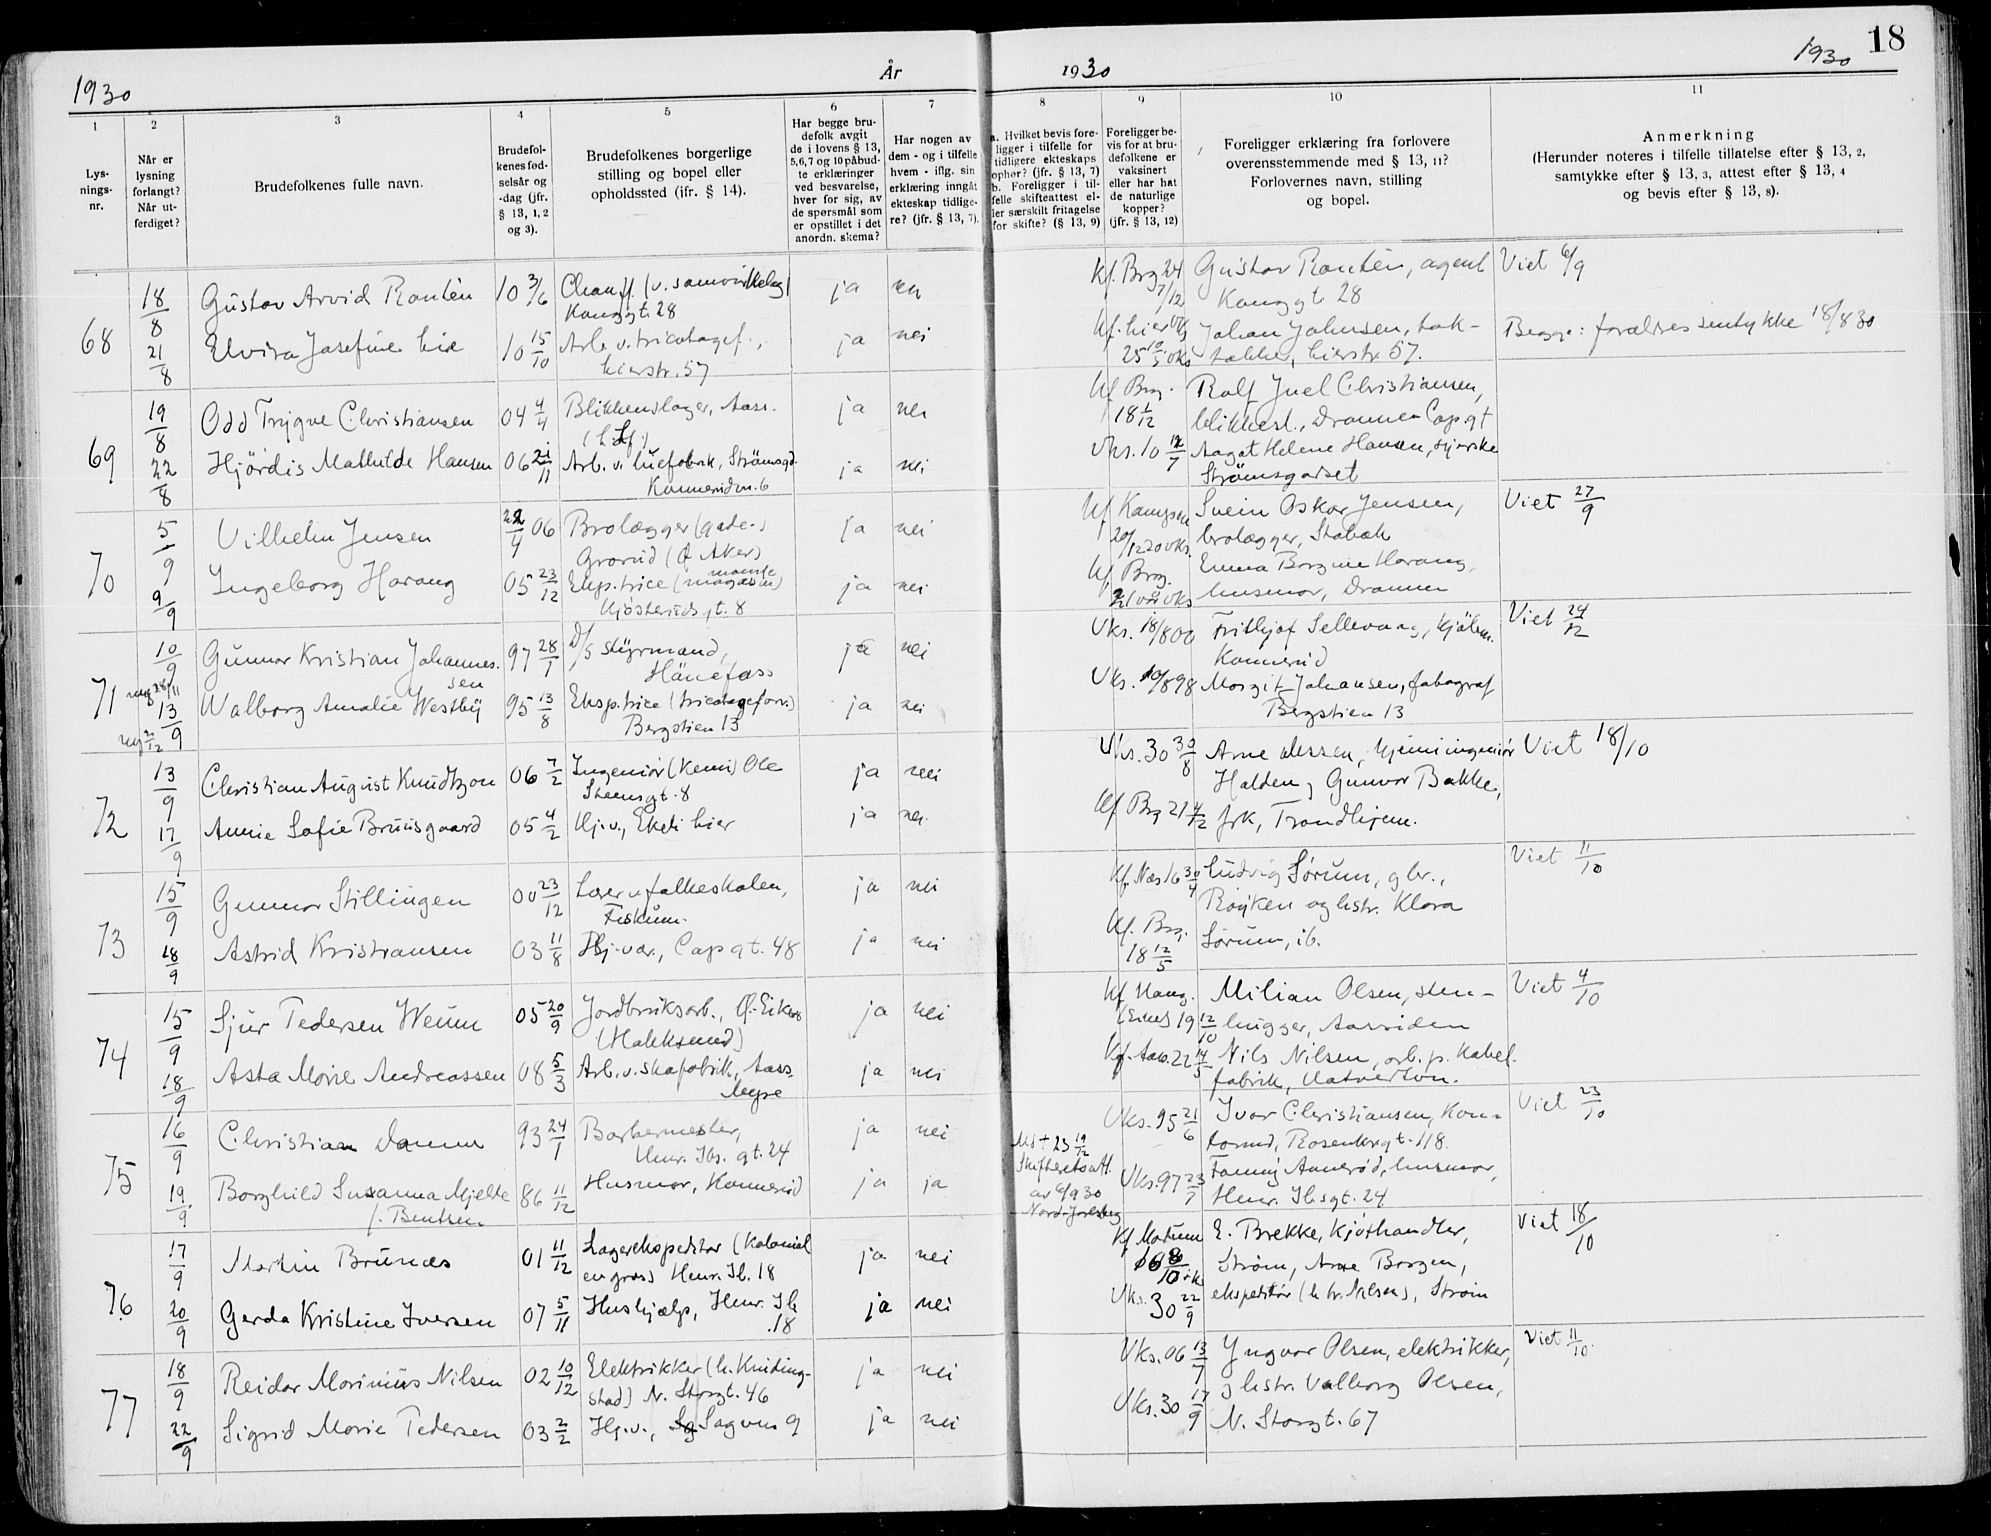 1930 År 1930 1930 18
1 2 3 4 5 6 7 8 9 10 11
Lys-
nings-
nr.
Når er
lysning
forlangt?
Når ut-
ferdiget?
Brudefolkenes fulle navn.
Brudefol-
kenes fød-
selsår og
-dag (jfr.
§ 13, 1, 2
og 3).
Brudefolkenes borgerlige
stilling og bopel eller
opholdssted (ifr. § 14).
Har begge bru-
defolk avgit
de i lovens § 13,
5,6,7 og 10 påbud-
te erklæringer
ved besvarelse,
hver for sig, av
de spørsmål som
er opstillet i det
anordn. skema?
Har nogen av
dem - og i tilfelle
hvem - iflg. sin
erklæring inngått
ekteskap tidlige-
re? (jfr. § 13, 7).
a. Hvilket bevis fore-
ligger i tilfelle for
tidligere ekteskaps
ophør? (jfr. § 13, 7)
b. Foreligger i til-
felle skifteattest el-
ler særskilt fritagelse
for skifte? (§ 13, 9)
Foreligger be-
vis for at bru-
defolkene er
vaksinert
eller har hat
de naturlige
kopper?
(jfr. § 13, 12)
Foreligger erklæring fra forlovere
overensstemmende med § 13, 11?
Forlovernes navn, stilling
og bopel.
Anmerkning
(Herunder noteres i tilfelle tillatelse efter § 13, 2,
samtykke efter § 13, 3, attest efter § 13, 4
og bevis efter § 13, 8).
68 18/8 Gustav Arvid 10 3/6 Chauff. (v. samvirkelag)
Konggt. 28 ja nei Kf. Brg 24 7/12 Gustav agent
Konggt 28 Viet 6/9
21/8 Elvira Josefine Lie 10 15/10 Arb. v. tricotagef.,
Lierstr. 57 ja nei 25 10/5 Johan Johnsen, tak-
Lierstr. 57. Begge: forældres samtykke 18/8 30
69 19/8 Odd Trygve Christiansen 04 4/4 Blikkenslager, Aass.
ja nei Kf Brg. 18 1/12 Rolf Juel Christiansen,
blikkesl., Drammen Cap. gt
22/8 Hjördis Mathilde Hansen 06 21/11 Arb. v. luefabrik, Strömsgd.
Konnerudvn. 6 ja nei Vks. 10 12/7 Aagot Helene Hansen,
Strömsgodset
70 5/9 Vilhelm Jensen 22/4 06 Brolægger (gade-)
Grorud (Ø. Aker) ja nei Kf Kampen
20/12 20 vks. Svein Oskar Jensen,
brolægger, Stabæk Viet 27/9
9/9 Ingeborg Harang 05 23/12 Eksp.trice (magasin)
Kjøsterudsgt. 8 ja nei Kf. Brg.
vks Emma Harang,
husmor, Drammen
71 10/9 Gunnar Kristian Johannes-
sen 97 28/1 D/S styrmand,
Hånefoss ja nei Vks. 18/8 00 Frithjof Sellevaag,
Konnerud Viet 24/12
13/9 Walborg Amalie Westby 95 13/8 Eksp.trice (tricotageforr.)
Bergstien 13 ja nei Vks. 10/8 98 Margit Johansen, fotograf
Bergstien 13
72 13/9 Christian August Knudtzon 06 7/2 Ingeniör (Kemi) Ole
Steensgt. 8 ja nei Vks. 30 30/8 Arne kjemiingeniör
Halden, Gunvor Bakke, Viet 18/10
17/9 Annie Sofie Bruusgaard 05 4/2 Hj.v., Eketi Lier ja nei. Kf Brg 21 4/12 frk, Trondhjem.
73 15/9 Gunnar Stillingen 00 23/12 Lærer v folkeskolen,
Fiskum. ja nei Kf. Næs 16 30/4 Ludvig Sørum, gbr.,
Röyken og hstr. Klara Viet 11/10
18/9 Astrid Kristiansen 03 11/8 Hj.vær., Cap gt. 48 ja nei Kf. Brg.
18 12/5 Sörum, ib.
74 15/9 Sjur Pedersen Weum 05 20/9 Jordbruksarb., Ø.-Eiker
(Hokksund) ja nei Kf Haug.
(Eiker) 19 12/10 Milian Olsen, sten-
hugger, Aassiden Viet 4/10
18/9 Asta Marie Andreassen 08 5/3 Arb. v. skofabrik, Aass.
ja nei Kf. Aass. 22 14/5 Nils Nilsen, arb. p. Kabel-
fabrik,
75 16/9 Christian Damm 93 24/1 Barbermester,
Henr. Ibs. gt. 24 ja nei Vks. 95 21/6 Ivar Christiansen, Kon-
Rosenkrgt. 118. Viet 23/10
19/9 Borghild Susanna Mjelde
f. Bentsen 86 11/12 Husmor, Konnerud ja ja 23 19/12
Skifterettsatt.
av 6/9 30
Nord-Jarlsberg Vks. 97 23/7 Fanny Annerød, husmor,
Henr. Ibsgt. 24
76 17/9 Martin Brunæs 01 11/12 Lagerekspeditør (Kolonial
engros) Henr. Ib. 18 ja nei Kf Modum E. Brekke, Kjøthandler,
Strøm, Arne Borgen, Viet 18/10
20/9 Gerda Kristine Iversen 07 5/11 Hushjælp, Henr. Ib
.18 ja nei Vks. 30 22/9 ekspeditör (h hr. Nilsen), Strøm
77 18/9 Reidar Marinius Nilsen 02 10/12 Elektrikker (h. Knuding-
stad) N. Storgt. 46 ja nei Vks. 06 13/7 Yngvar Olsen, elektrikker,
og hstr. Valborg Olsen, Viet 11/10.
22/9 Sigrid Marie Pedersen 03 2/2 Hj.v., Sagvn 9 ja nei Vks. 30 17/9 N. Storgt. 67